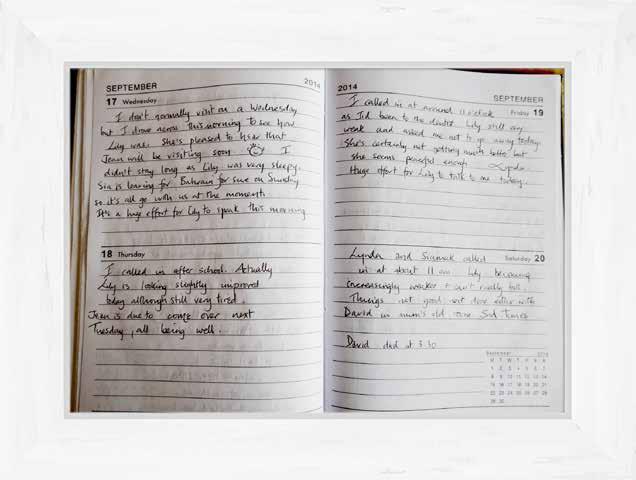 SEPTEMBER 2014
17 Wednesday
I don't normally visit on a Wednesday
but I drove across this morning to see how
Lily was. She's pleased to hear that
Jean will be visiting soon. I
didn't stay long as Lily was very sleepy.
Sia is leaving for Bahrain for sure on Sunday
so it's all go with us at the moment.
It's a huge effort for Lily to speak this morning
18 Thursday
I called in after school. Actually
Lily is looking slightly improved
today although still very tired.
Jean is due to come over next
Tuesday, all being well.
2014 SEPTEMBER
Friday 19
I called in at around 11 o'clock
as I'd been to the dentist. Lily still very
weak and asked me not to go away today.
She's certainly not getting much better but
she seems peaceful enough. Lynda
Huge effort for Lily to talk to me today.
Saturday 20
Lynda and called
in at about 11 am. Lily becoming
increasingly weaker + can't really talk.
Things not good over there either with
David in mum's old room. Sad times
David died at 3.30
September 2014
M T W T F S S
1 2 3 4 5 6 7
8 9 10 11 12 13 14
15 16 17 18 19 20 21
22 23 24 25 26 27 28
29 30